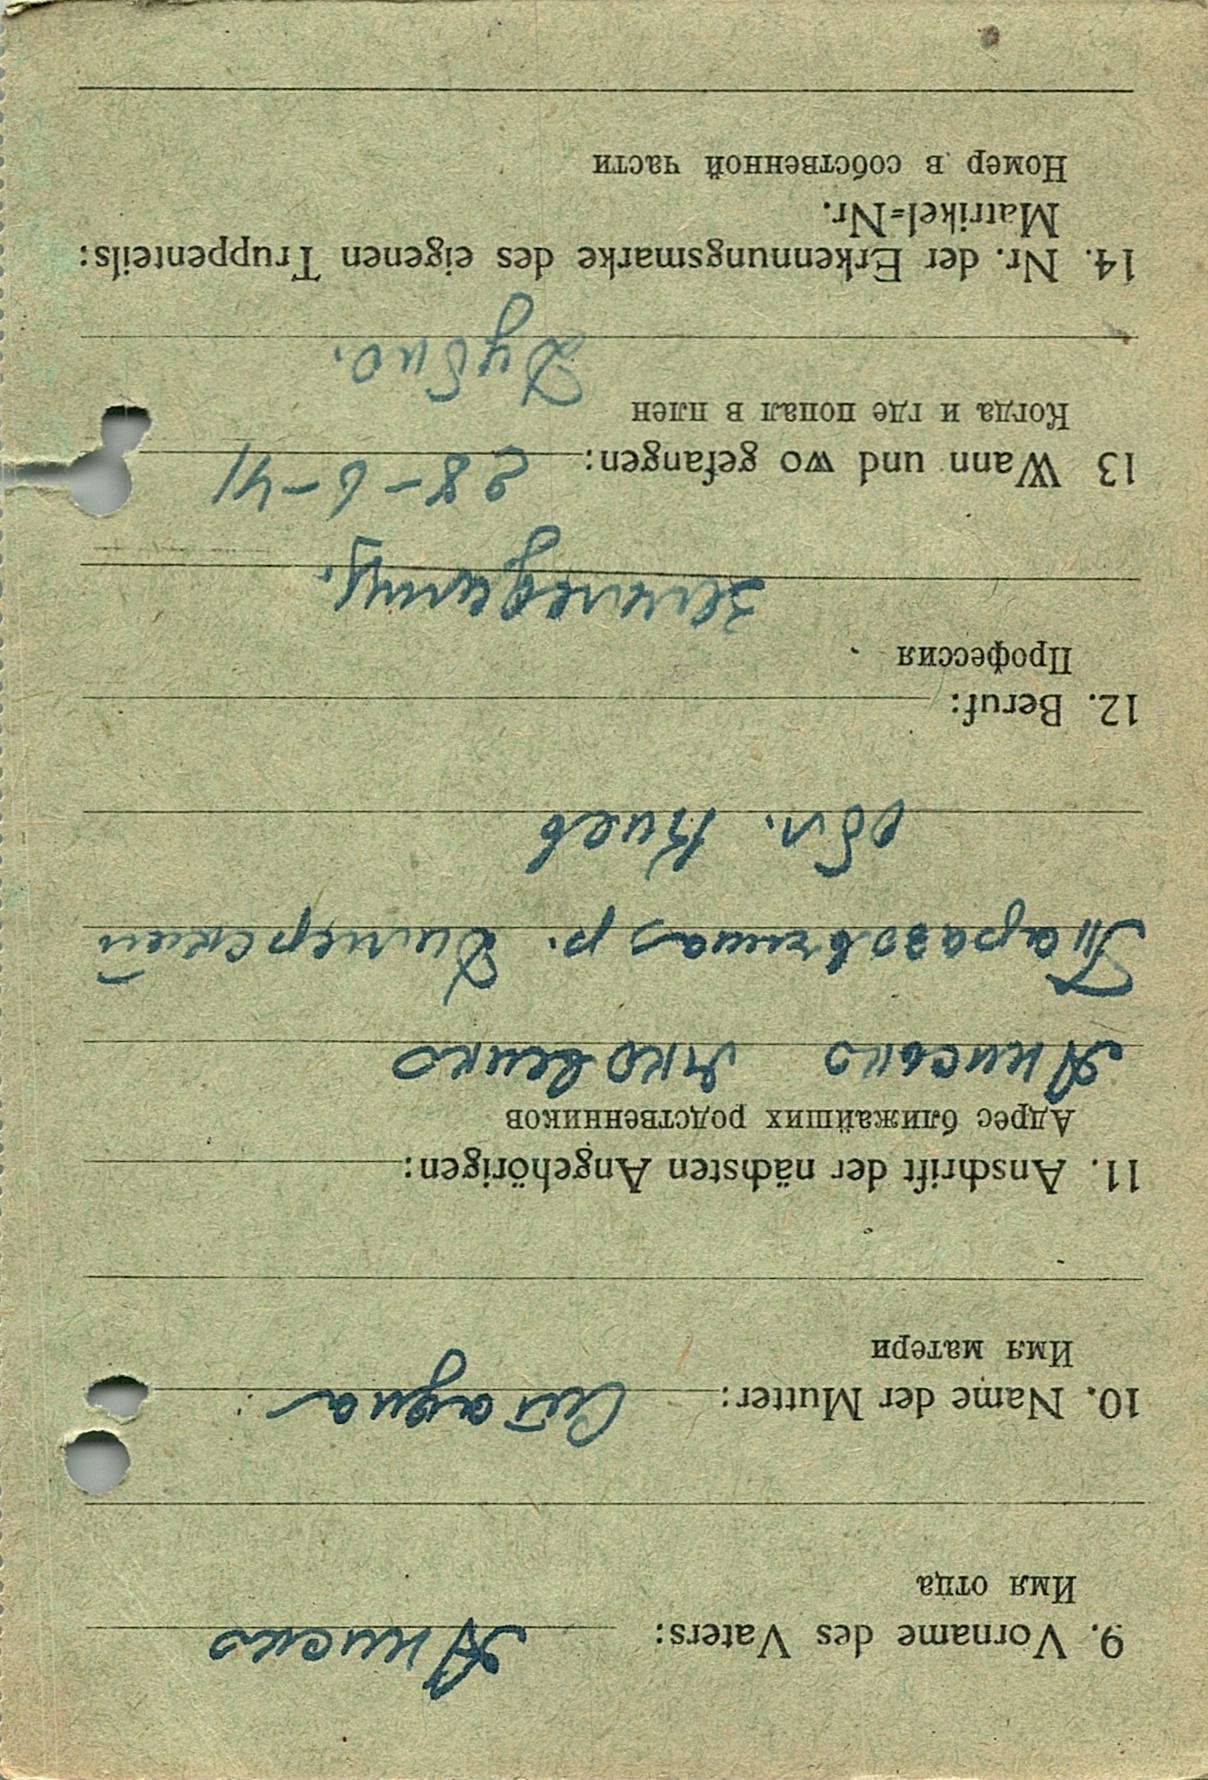 9. Vorname des Vaters: Аниско
Имя отца
10. Name der Mutter:
Имя матери
11. Anschrift der nächsten Angehörigen:
Адрес ближайших родственников
Яковенко
р. Димерский
обл. Киев
12. Beruf:
Профессия
13 Wann und wo gefangen: 28-6-41
Когда и где попал в плен
Дубно.
14. Nr. der Erkennungsmarke des eigenen Truppenteils:
Matrikel=Nr.
Номер в собственной части